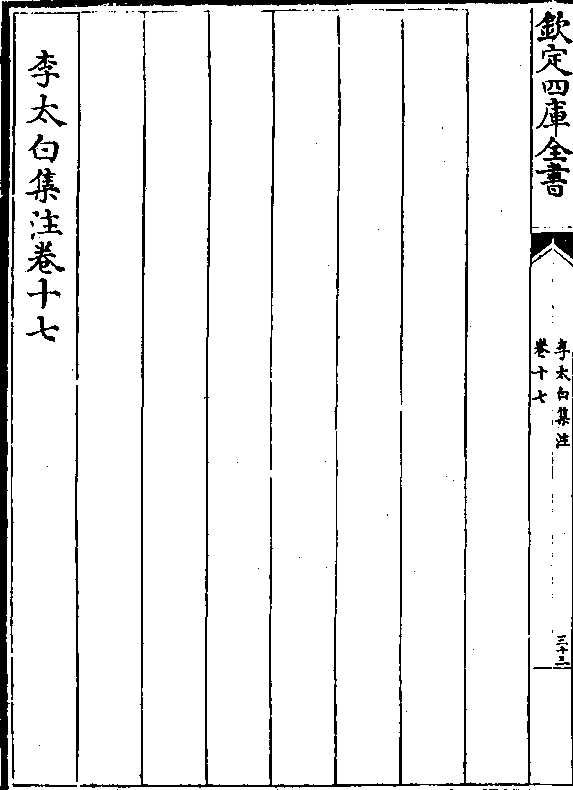 欽定四庫全書
李太白集注
卷十七
三十三
李太白集注卷十七